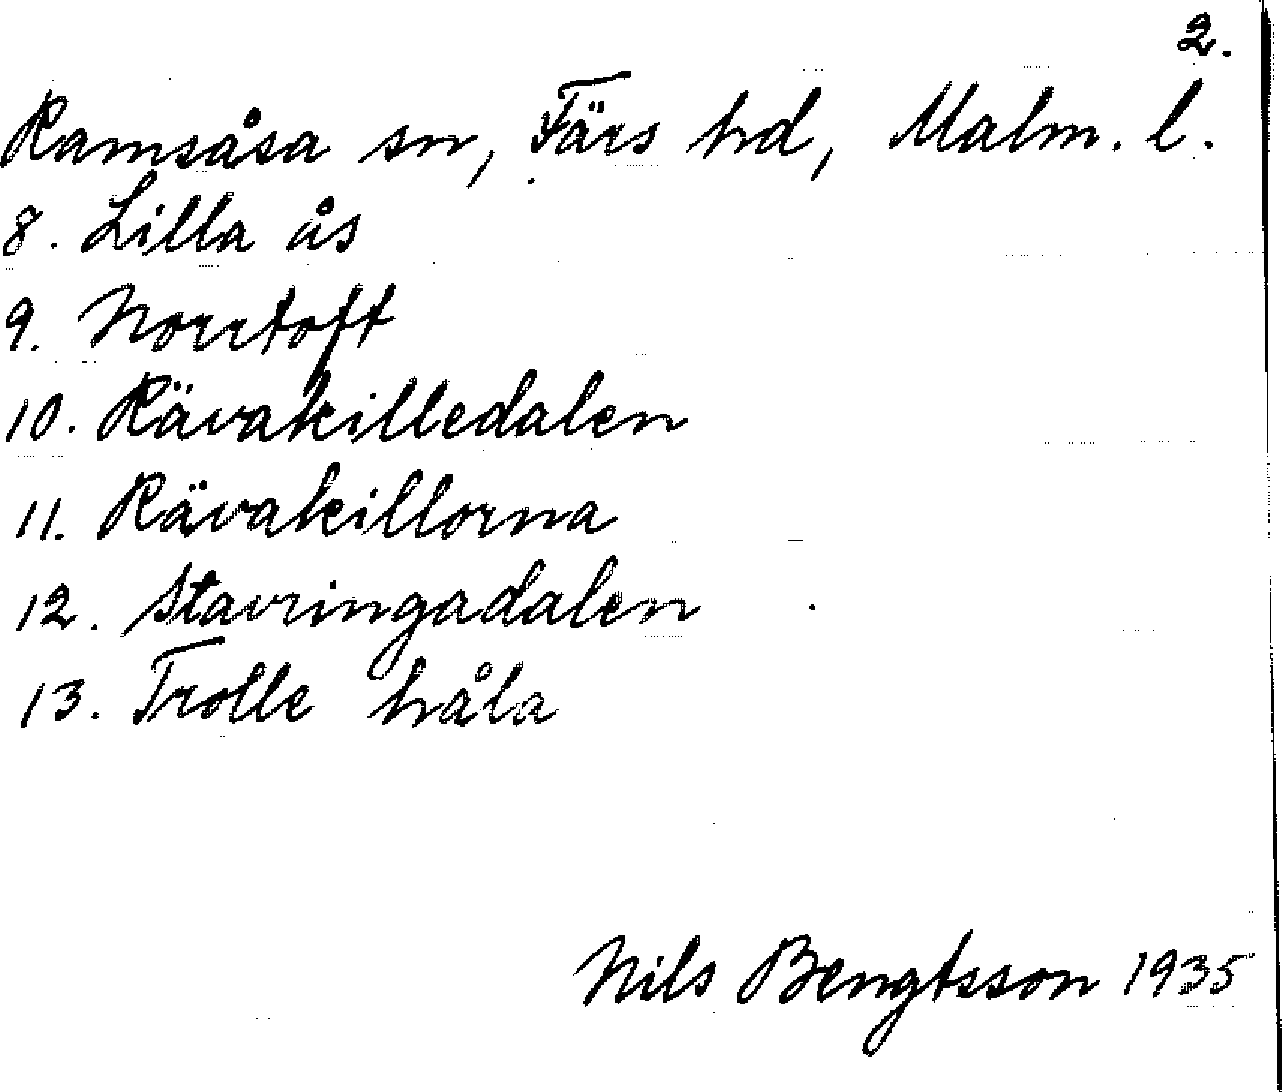 2.
Ramsåsa sn, Färs hd, Malm. l.
8. Lilla ås
9. Norrtoft
10. Rävakilledalen
11. Rävakillorna
12. Stavringadalen
13. Trolle håla
Nils Bengtsson 1935